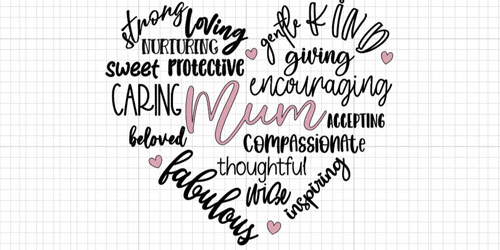 strong loving
gentle KIND
NURTURING
giving
sweet protective
encouraging
CARING
Mum
ACCEPTING
beloved
COMPASSIONATE
thoughtful
fabulous
WISE
inspiring